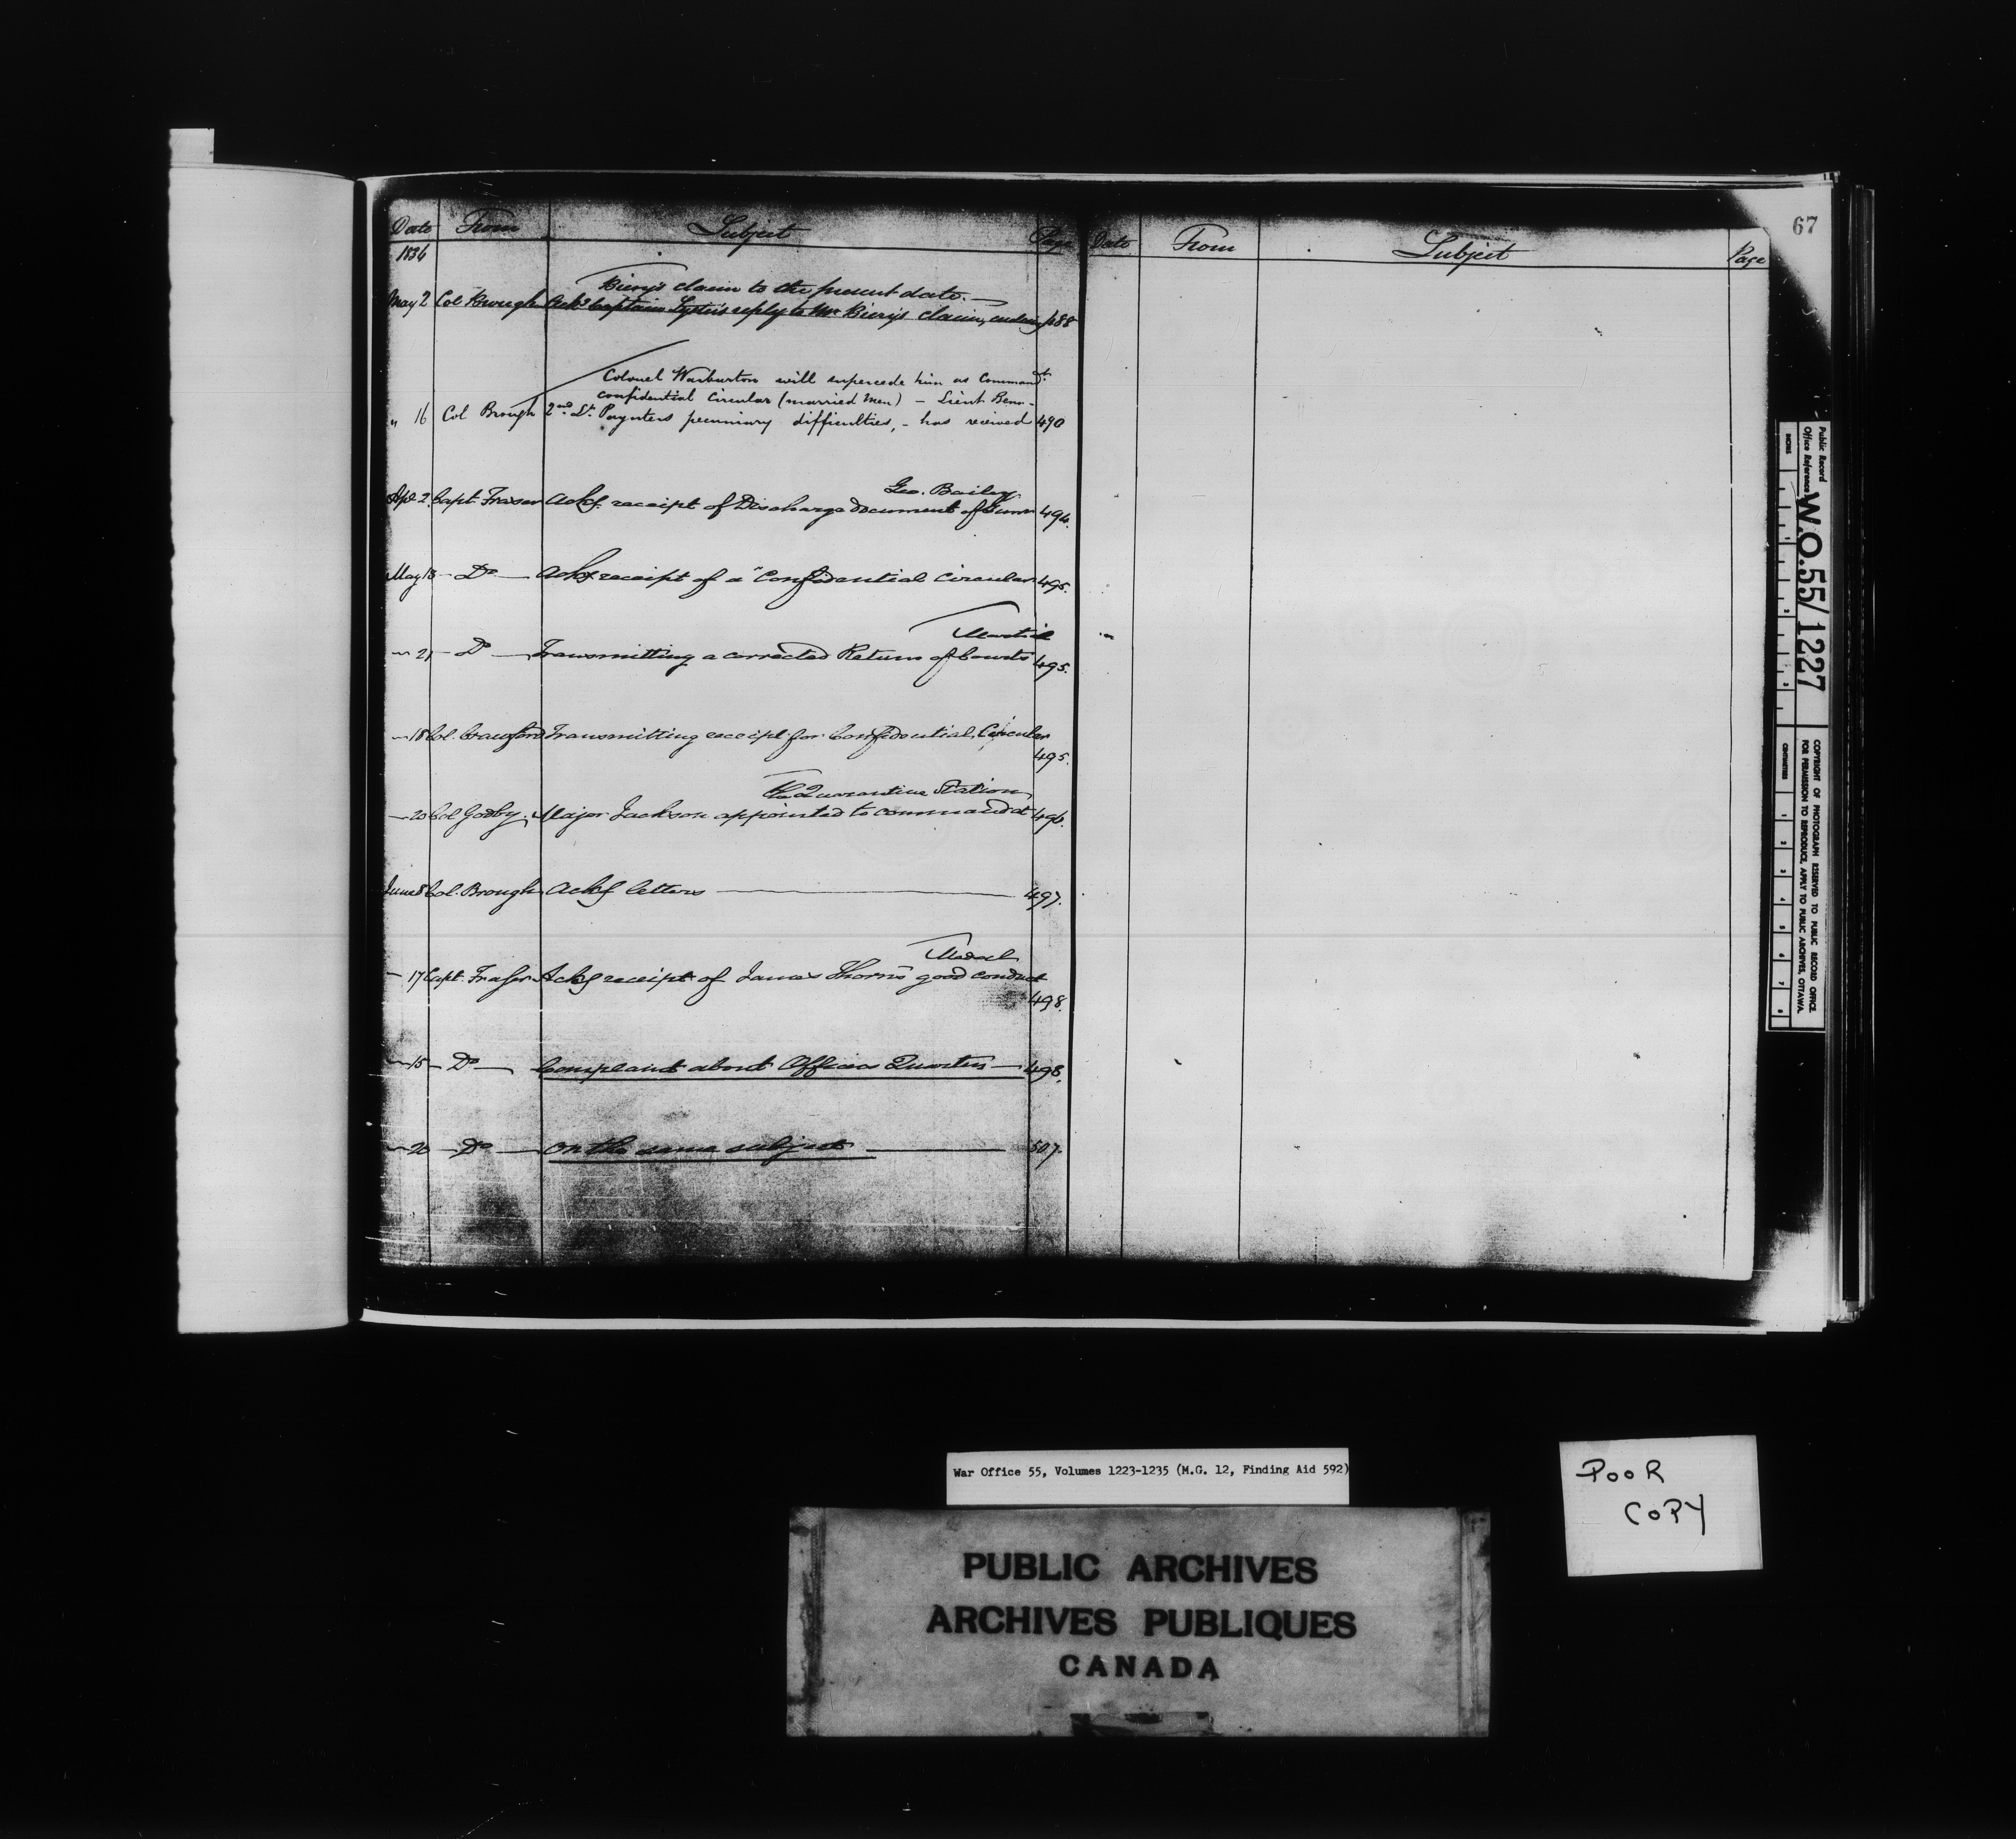 67
Date From Subject Page
1836
Biery's claim to the present date. —
May 2 Col Brough Ackg Captain reply to Mr Biery's claim, ending 488
Colonel Warburton will supercede him as Commandt.
confidential Circular (married Men) — Lieut Benn-
" 16 Col Brough 2nd Lt. Paynters pecuniary difficulties, - has received 490
Geo. Bailey
Apl. 2. Capt Fraser Ackg. receipt of Discharge document of Gunr 494.
May 13 - Do — Ackg receipt of a "Confidential Circular 495.
Martial
— 21 - Do — Transmitting a corrected Return of Courts 495.
— 18 Col. Crawford Transmitting receipt for Confidential Circular
495.
The Quarantine Station
— 20 Col Godby. Major Jackson appointed to command at 496.
June 8 Col. Brough Ackg letters — 497.
Medal
— 17 Capt. Fraser Ackg receipt of James Thorn's good conduct
498.
— 15 — Do — Complaint about Officers Quarters — 498.
— 20 — Do — On the same subject — 507.
Date From Subject Page
Public Record
Office Reference
W.O.55/1227
INCHES
1 2 3
CENTIMETRES
1 2 3 4 5 6 7 8
COPYRIGHT OF PHOTOGRAPH RESERVED TO PUBLIC RECORD OFFICE.
FOR PERMISSION TO REPRODUCE, APPLY TO PUBLIC ARCHIVES, OTTAWA.
War Office 55, Volumes 1223-1235 (M.G. 12, Finding Aid 592)
POOR
COPY
PUBLIC ARCHIVES
ARCHIVES PUBLIQUES
CANADA